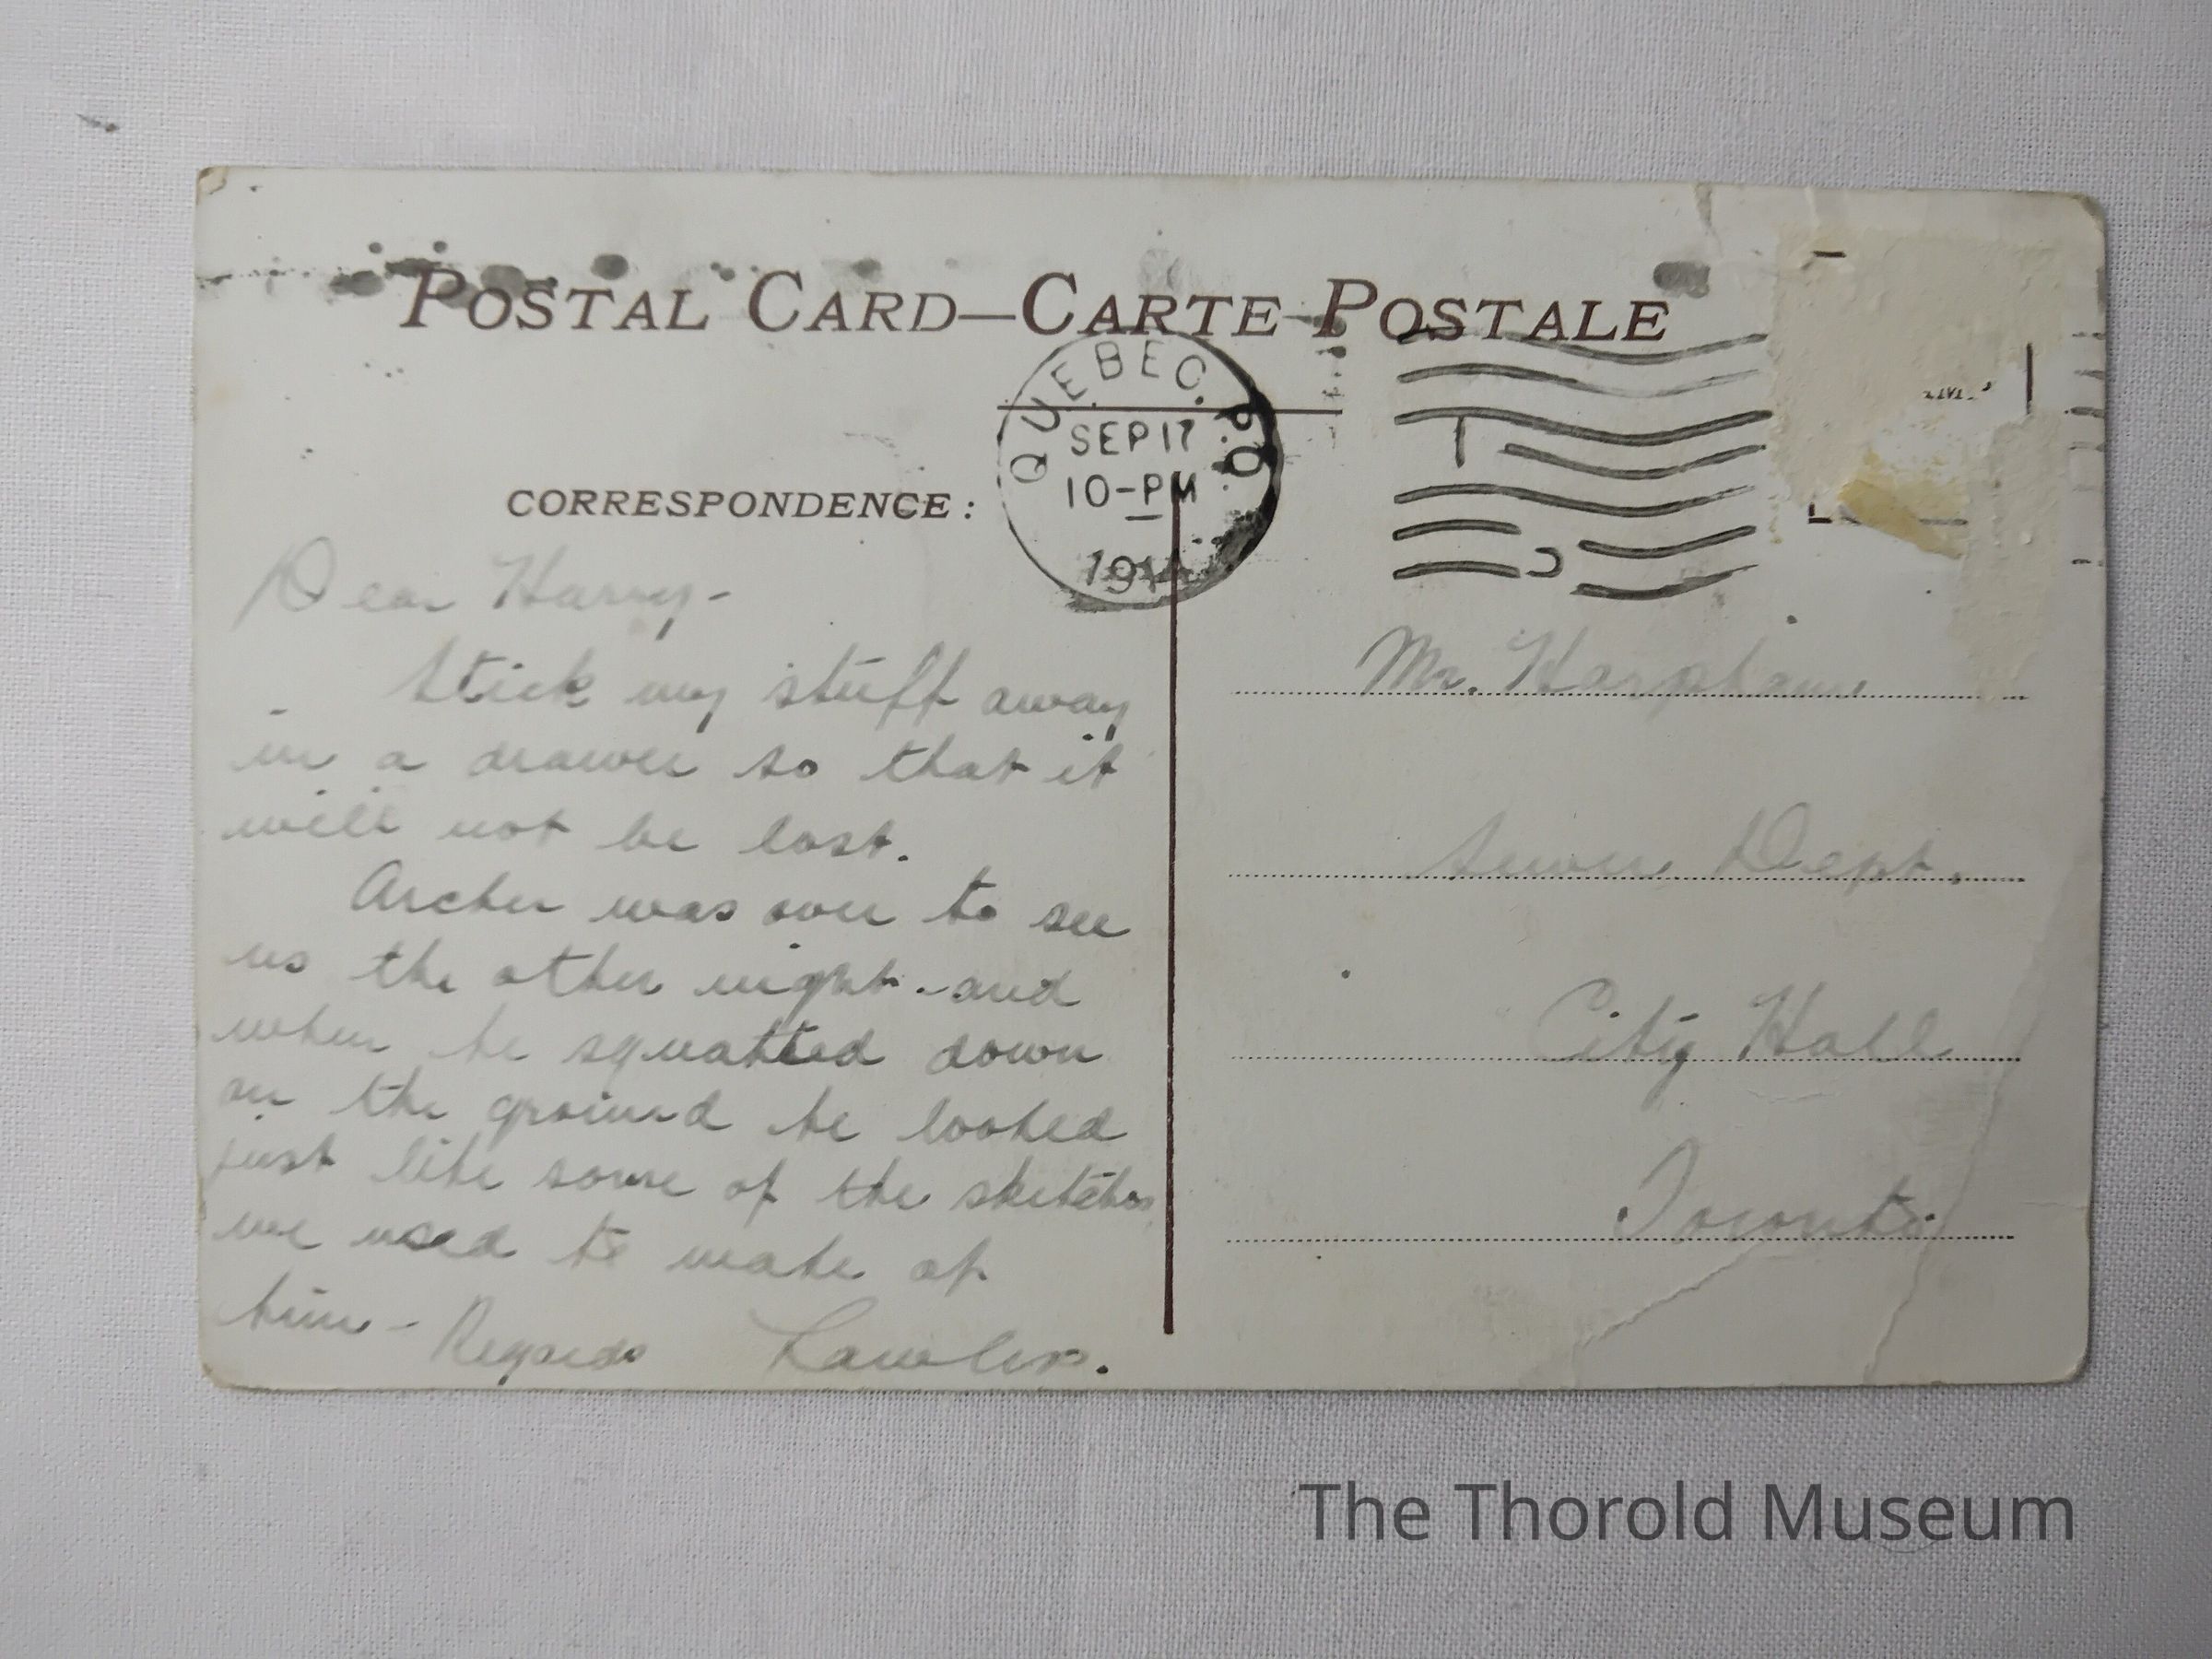 POSTAL CARD—CARTE POSTALE
QUEBEC. P.Q.
SEP 17
10-PM
191
CORRESPONDENCE:
Dear Harry-
Stick my stuff away
in a drawer so that it
will not be lost.
Archer was over to see
us the other night - and
when he squatted down
on the ground he looked
just like some of the sketches
we used to make of
him - Regards Lawler.
Mr. Harpham
Sewer Dept.
City Hall
Toronto.
The Thorold Museum